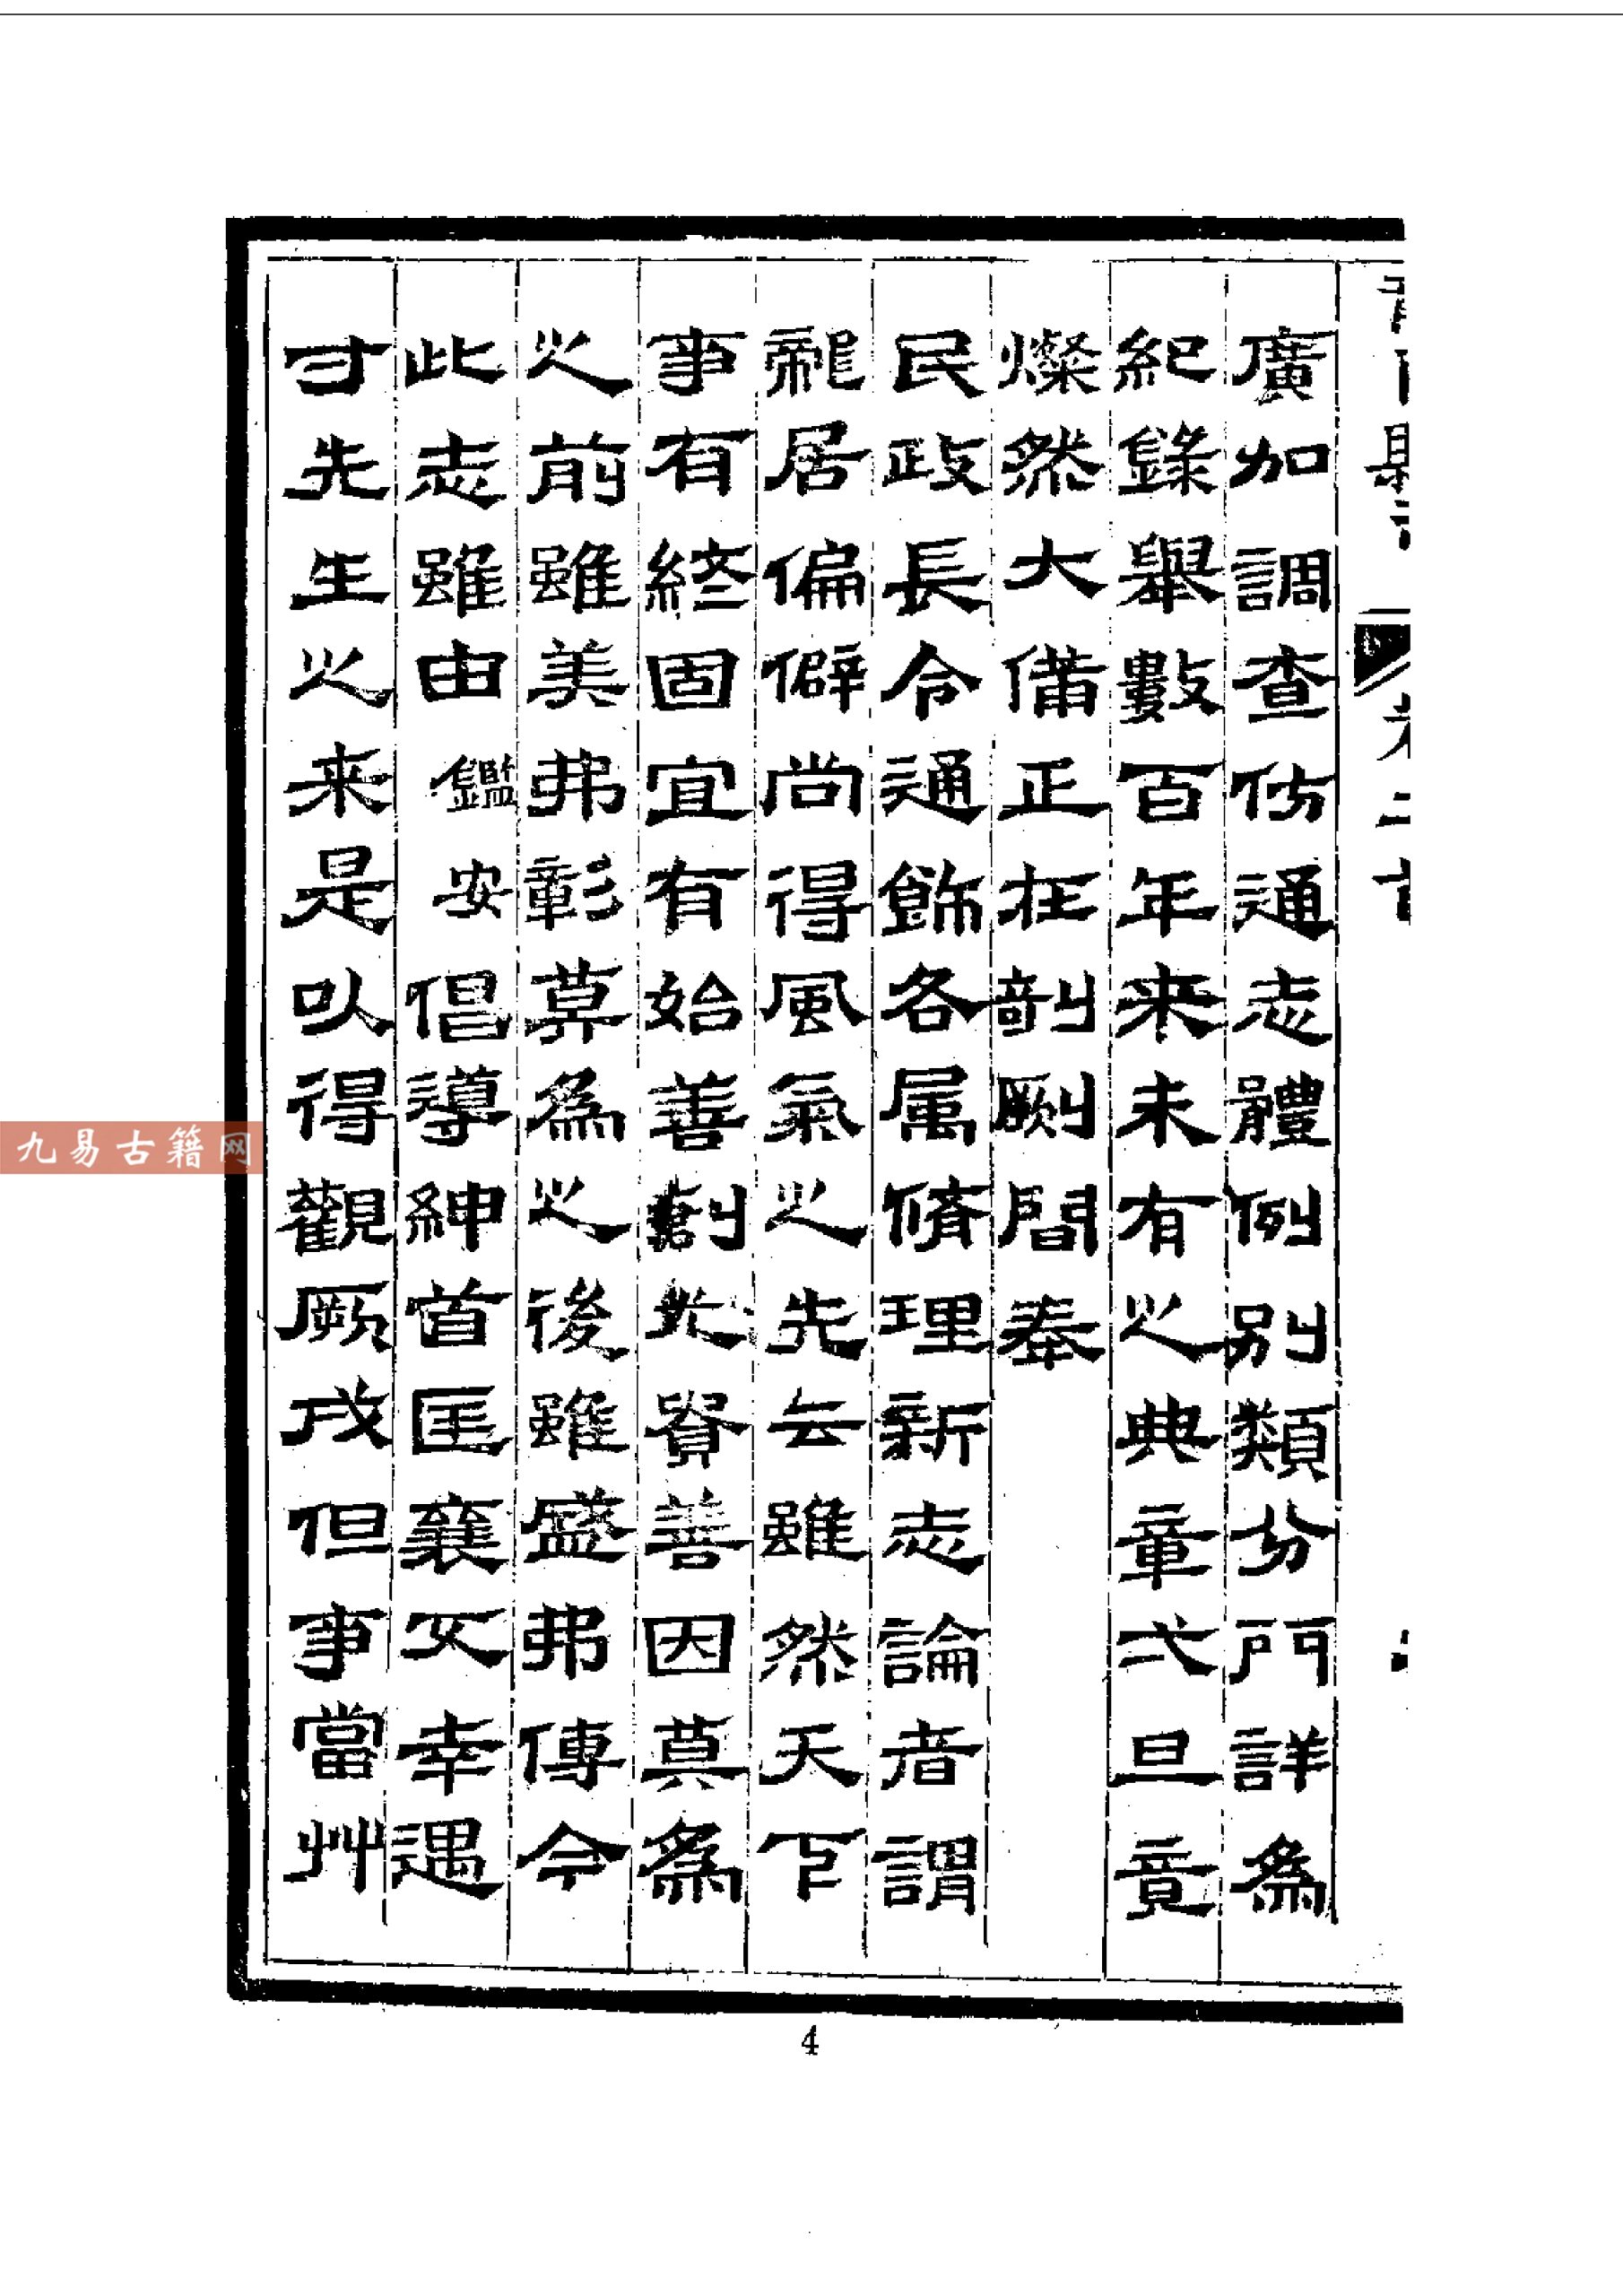 廣加調查仿通志體例別類分門詳為
紀錄舉數百年来未有之典章弌旦竟
燦然大備正在剞劂間奉
民政長令通飭各属脩理新志論者謂
龍居偏僻尚得風氣之先云雖然天下
事有終固宜有始善創尤貴善因莫為
之前雖美弗彰莫為之後雖盛弗傳今
此志雖由鑑安倡導紳首匡襄又幸遇
寸先生之来是以得觀厥成但事當艸
4
九易古籍网